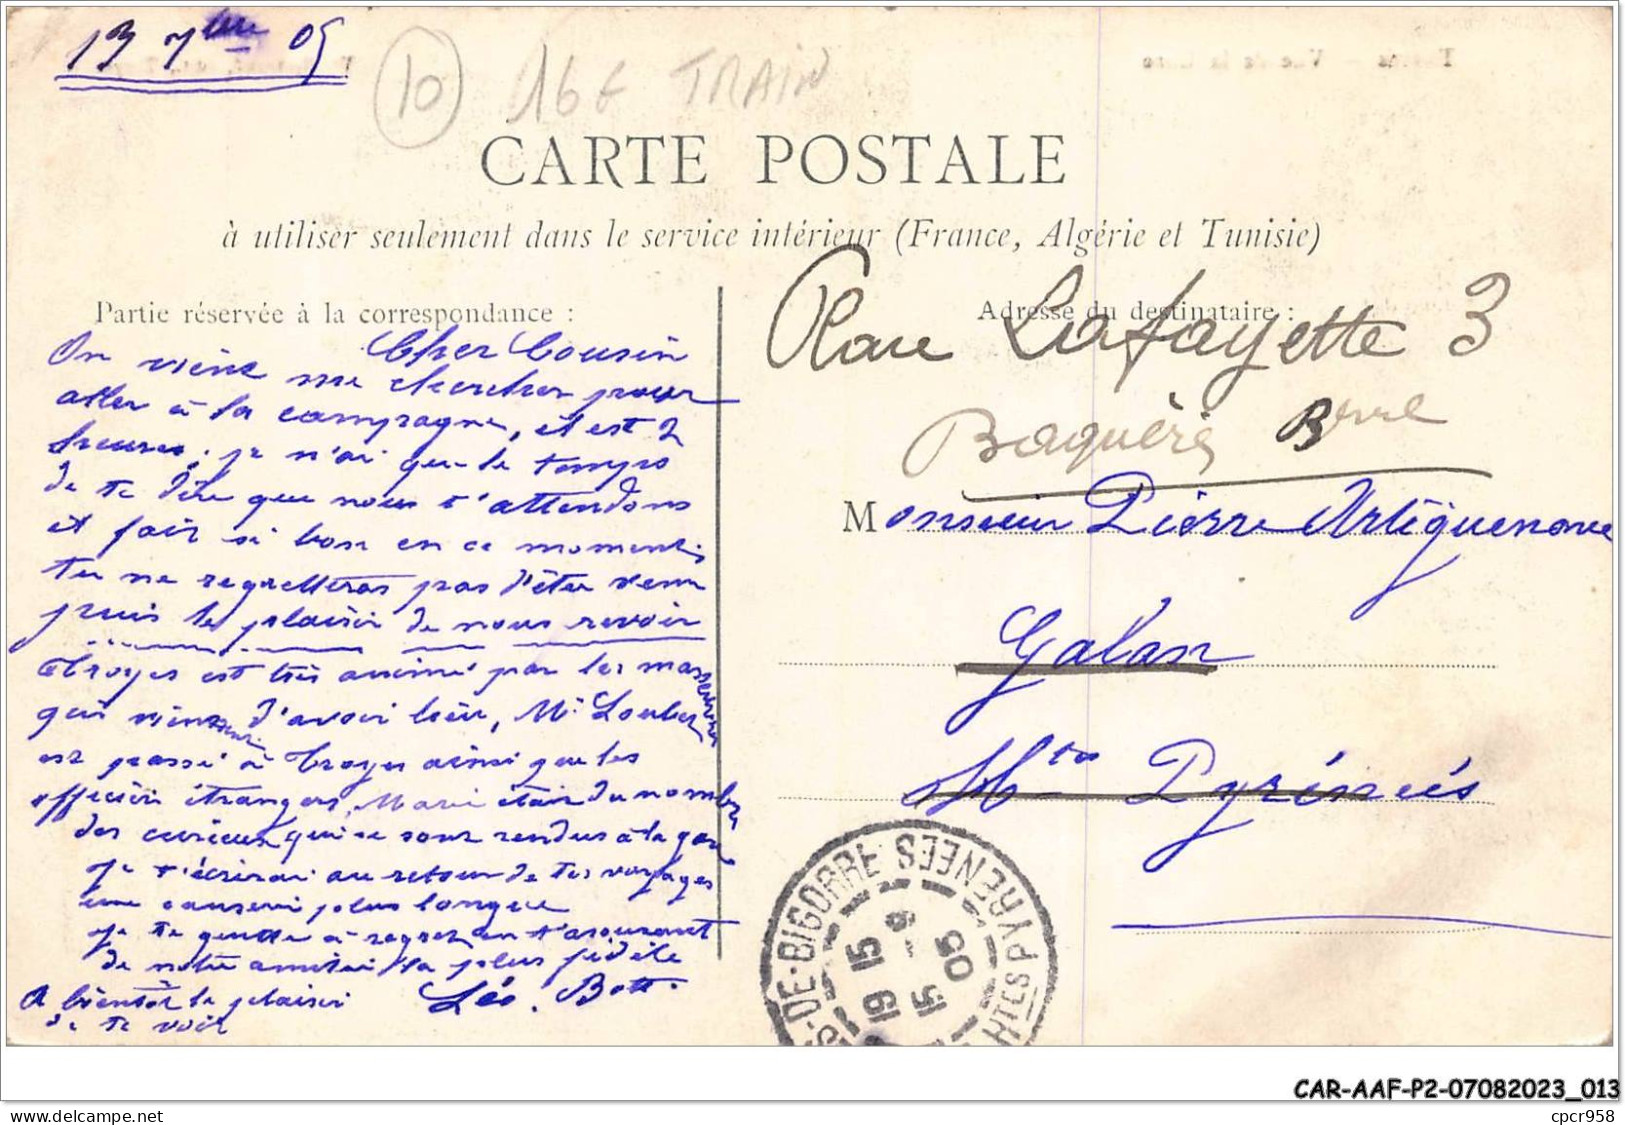 13 7bre 05
10 16€ TRAIN
Troyes - Vue de la Gare
CARTE POSTALE
à utiliser seulement dans le service intérieur (France, Algérie et Tunisie)
Partie réservée à la correspondance :
Cher Cousin
On vient me chercher pour
aller à la campagne, il est 2
heures, je n'ai que le temps
de te dire que nous t'attendons
et fair si bon en ce moment,
tu ne regretteras pas d'être venu
puis le plaisir de nous revoir
Troyes est très animé par les manoeuvres
qui viennent d'avoir lieu, Mr Loubet
est passé à Troyes ainsi que les
officiers étrangers, Marie était du nombre
des curieux qui se sont rendus à la gare
je t'écrirai au retour de tes voyages
une causerie plus longue
je te quitte à regret en t'assurant
de notre amitié la plus fidèle
Léo. Bott.
A bientôt le plaisir
de te voir
Adresse du destinataire :
Place Lafayette 3
Bagnères Brre
Monsieur Pierre Artiguenave
Galan
Htes Pyrénées
S-DE-BIGORRE HTES PYRENEES
19 15
15 - 9
05
CAR-AAF-P2-07082023_013
www.delcampe.net
cpcr958